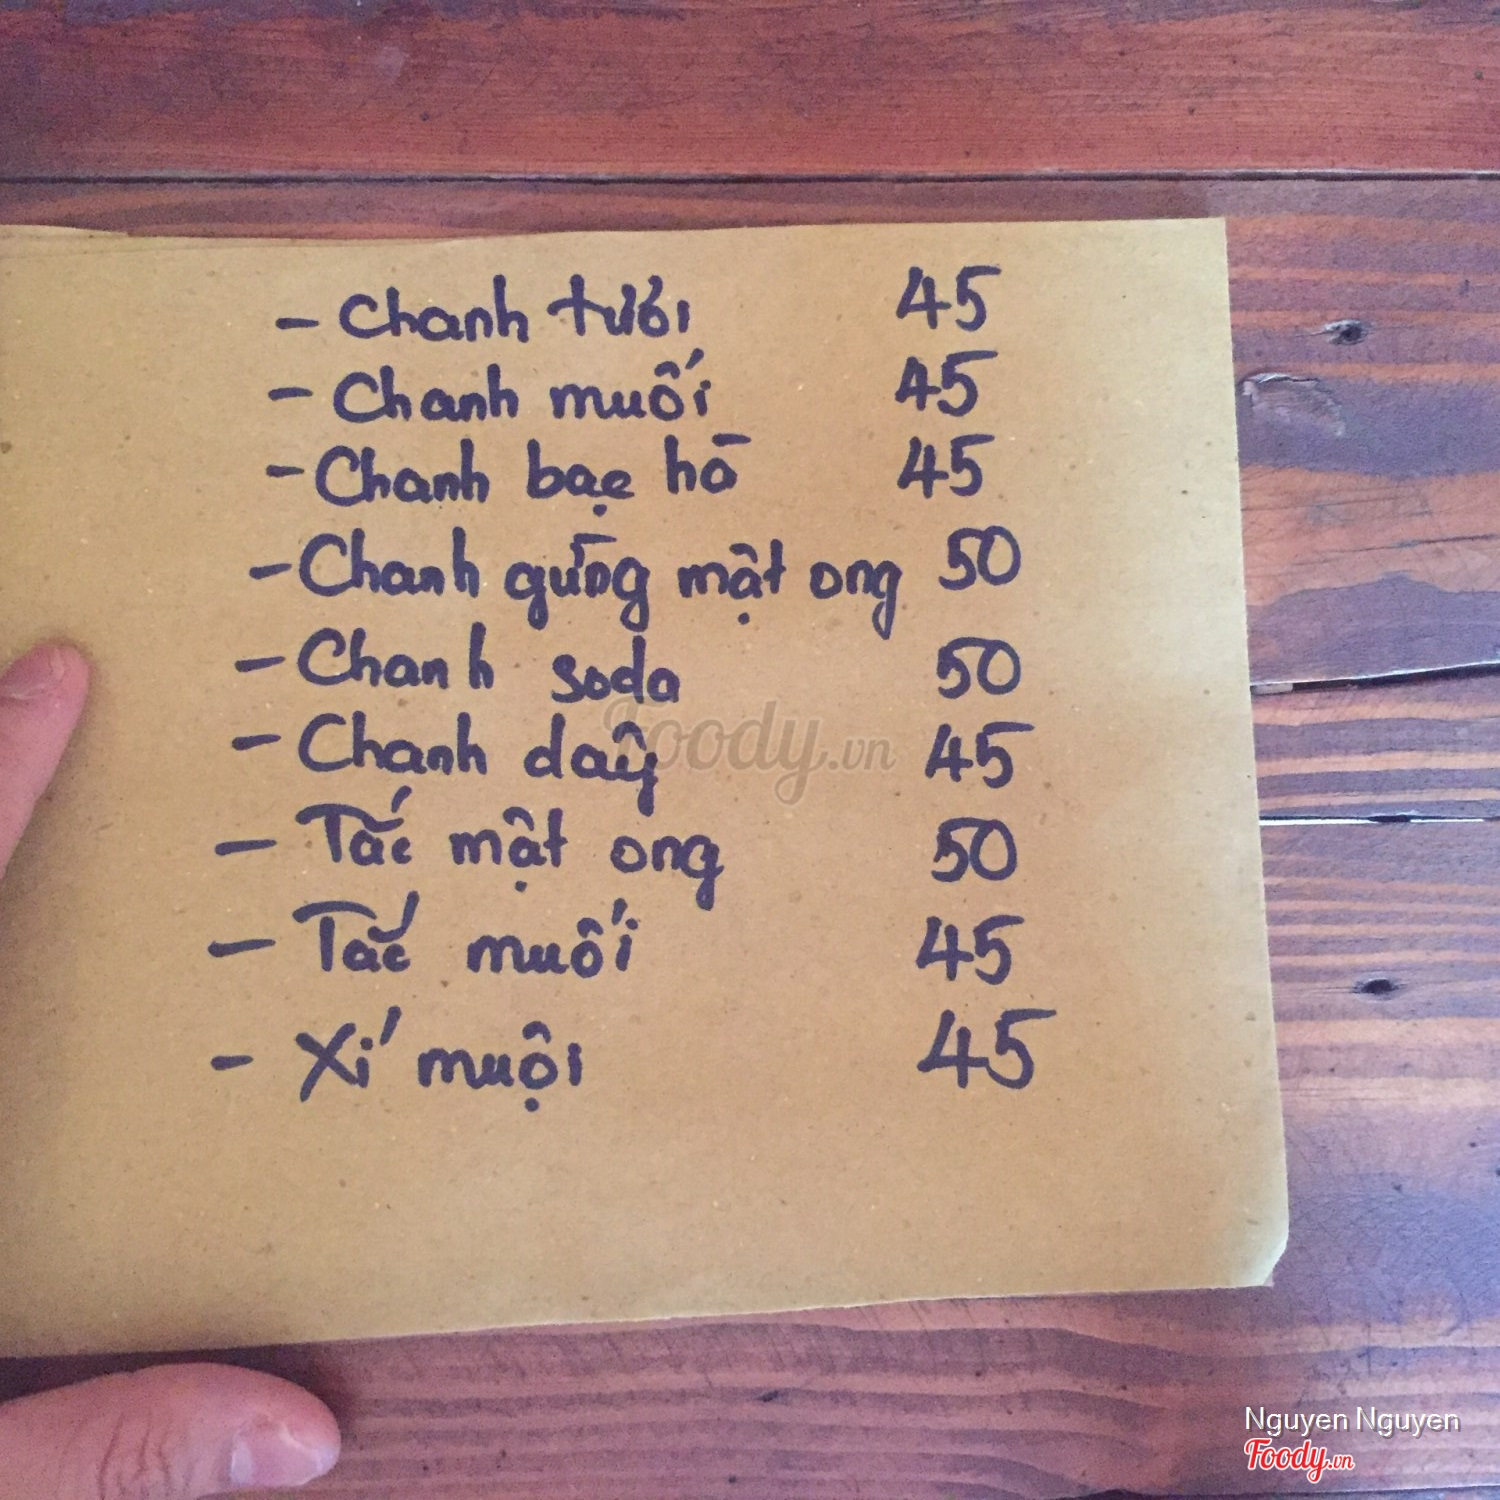 - Chanh tươi 45
- Chanh muối 45
- Chanh bạc hà 45
- Chanh gừng mật ong 50
- Chanh soda 50
- Chanh dây 45
- Tắc mật ong 50
- Tắc muối 45
- Xí muội 45
Foody.vn
Nguyen Nguyen
Foody.vn